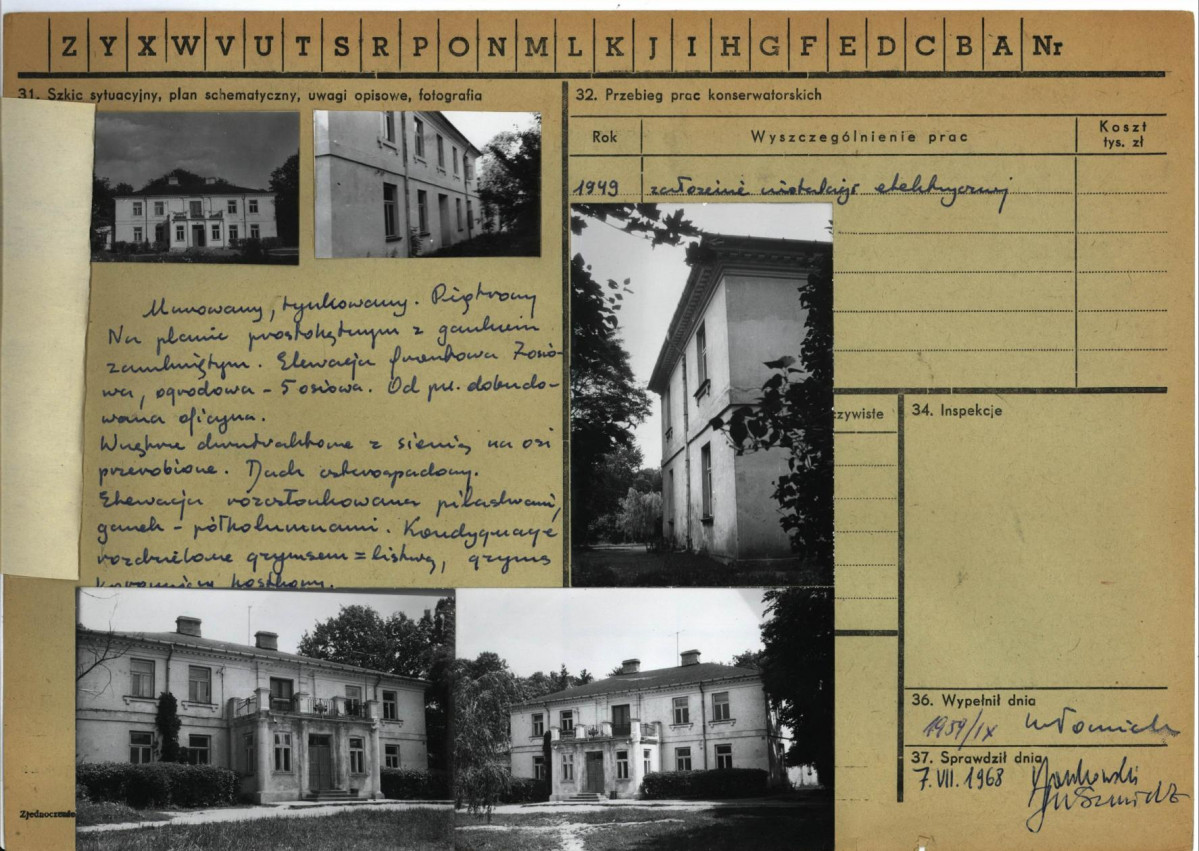 Z Y X W V U T S R P O N M L K J I H G F E D C B A Nr
31. Szkic sytuacyjny, plan schematyczny, uwagi opisowe, fotografia
Murowany, tynkowany. Piętrowy
Na planie prostokętnym z gankiem
zamkniętym. Elewacja frontowa 7osio-
wa, ogrodowa - 5 osiowa. Od pn. dobudo-
wana oficyna.
Wnętrze dwutraktowe z sienią na osi
przerobione. Dach czterospadowy.
Elewacja rozczłonkowana pilastrami,
ganek - półkolumnami. Kondygnacje
rozdzielone gzymsem = listwą, gzyms
kostkowy.
Zjednoczenie
32. Przebieg prac konserwatorskich
Rok Wyszczególnienie prac Koszt
tys. zł
1949 założenie instalacji elektrycznej
zywiste
34. Inspekcje
36. Wypełnił dnia
1959/IX
37. Sprawdził dnia
7.VII.1968 Jankowski